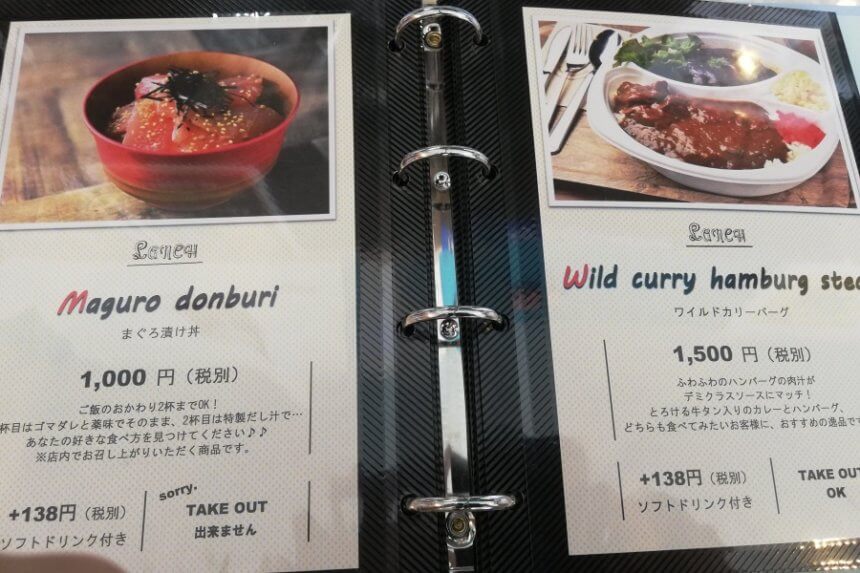 Lunch
Maguro donburi
まぐろ漬け丼
1,000 円（税別）
ご飯のおかわり2杯までOK！
杯目はゴマダレと薬味でそのまま、2杯目は特製だし汁で…
あなたの好きな食べ方を見つけてください♪♪
※店内でお召し上がりいただく商品です。
+138円（税別）
ソフトドリンク付き
sorry.
TAKE OUT
出来ません
Lunch
Wild curry hamburg stea
ワイルドカリーバーグ
1,500 円（税別）
ふわふわのハンバーグの肉汁が
デミグラスソースにマッチ！
とろける牛タン入りのカレーとハンバーグ、
どちらも食べてみたいお客様に、おすすめの逸品です
+138円（税別）
ソフトドリンク付き
TAKE OUT
OK